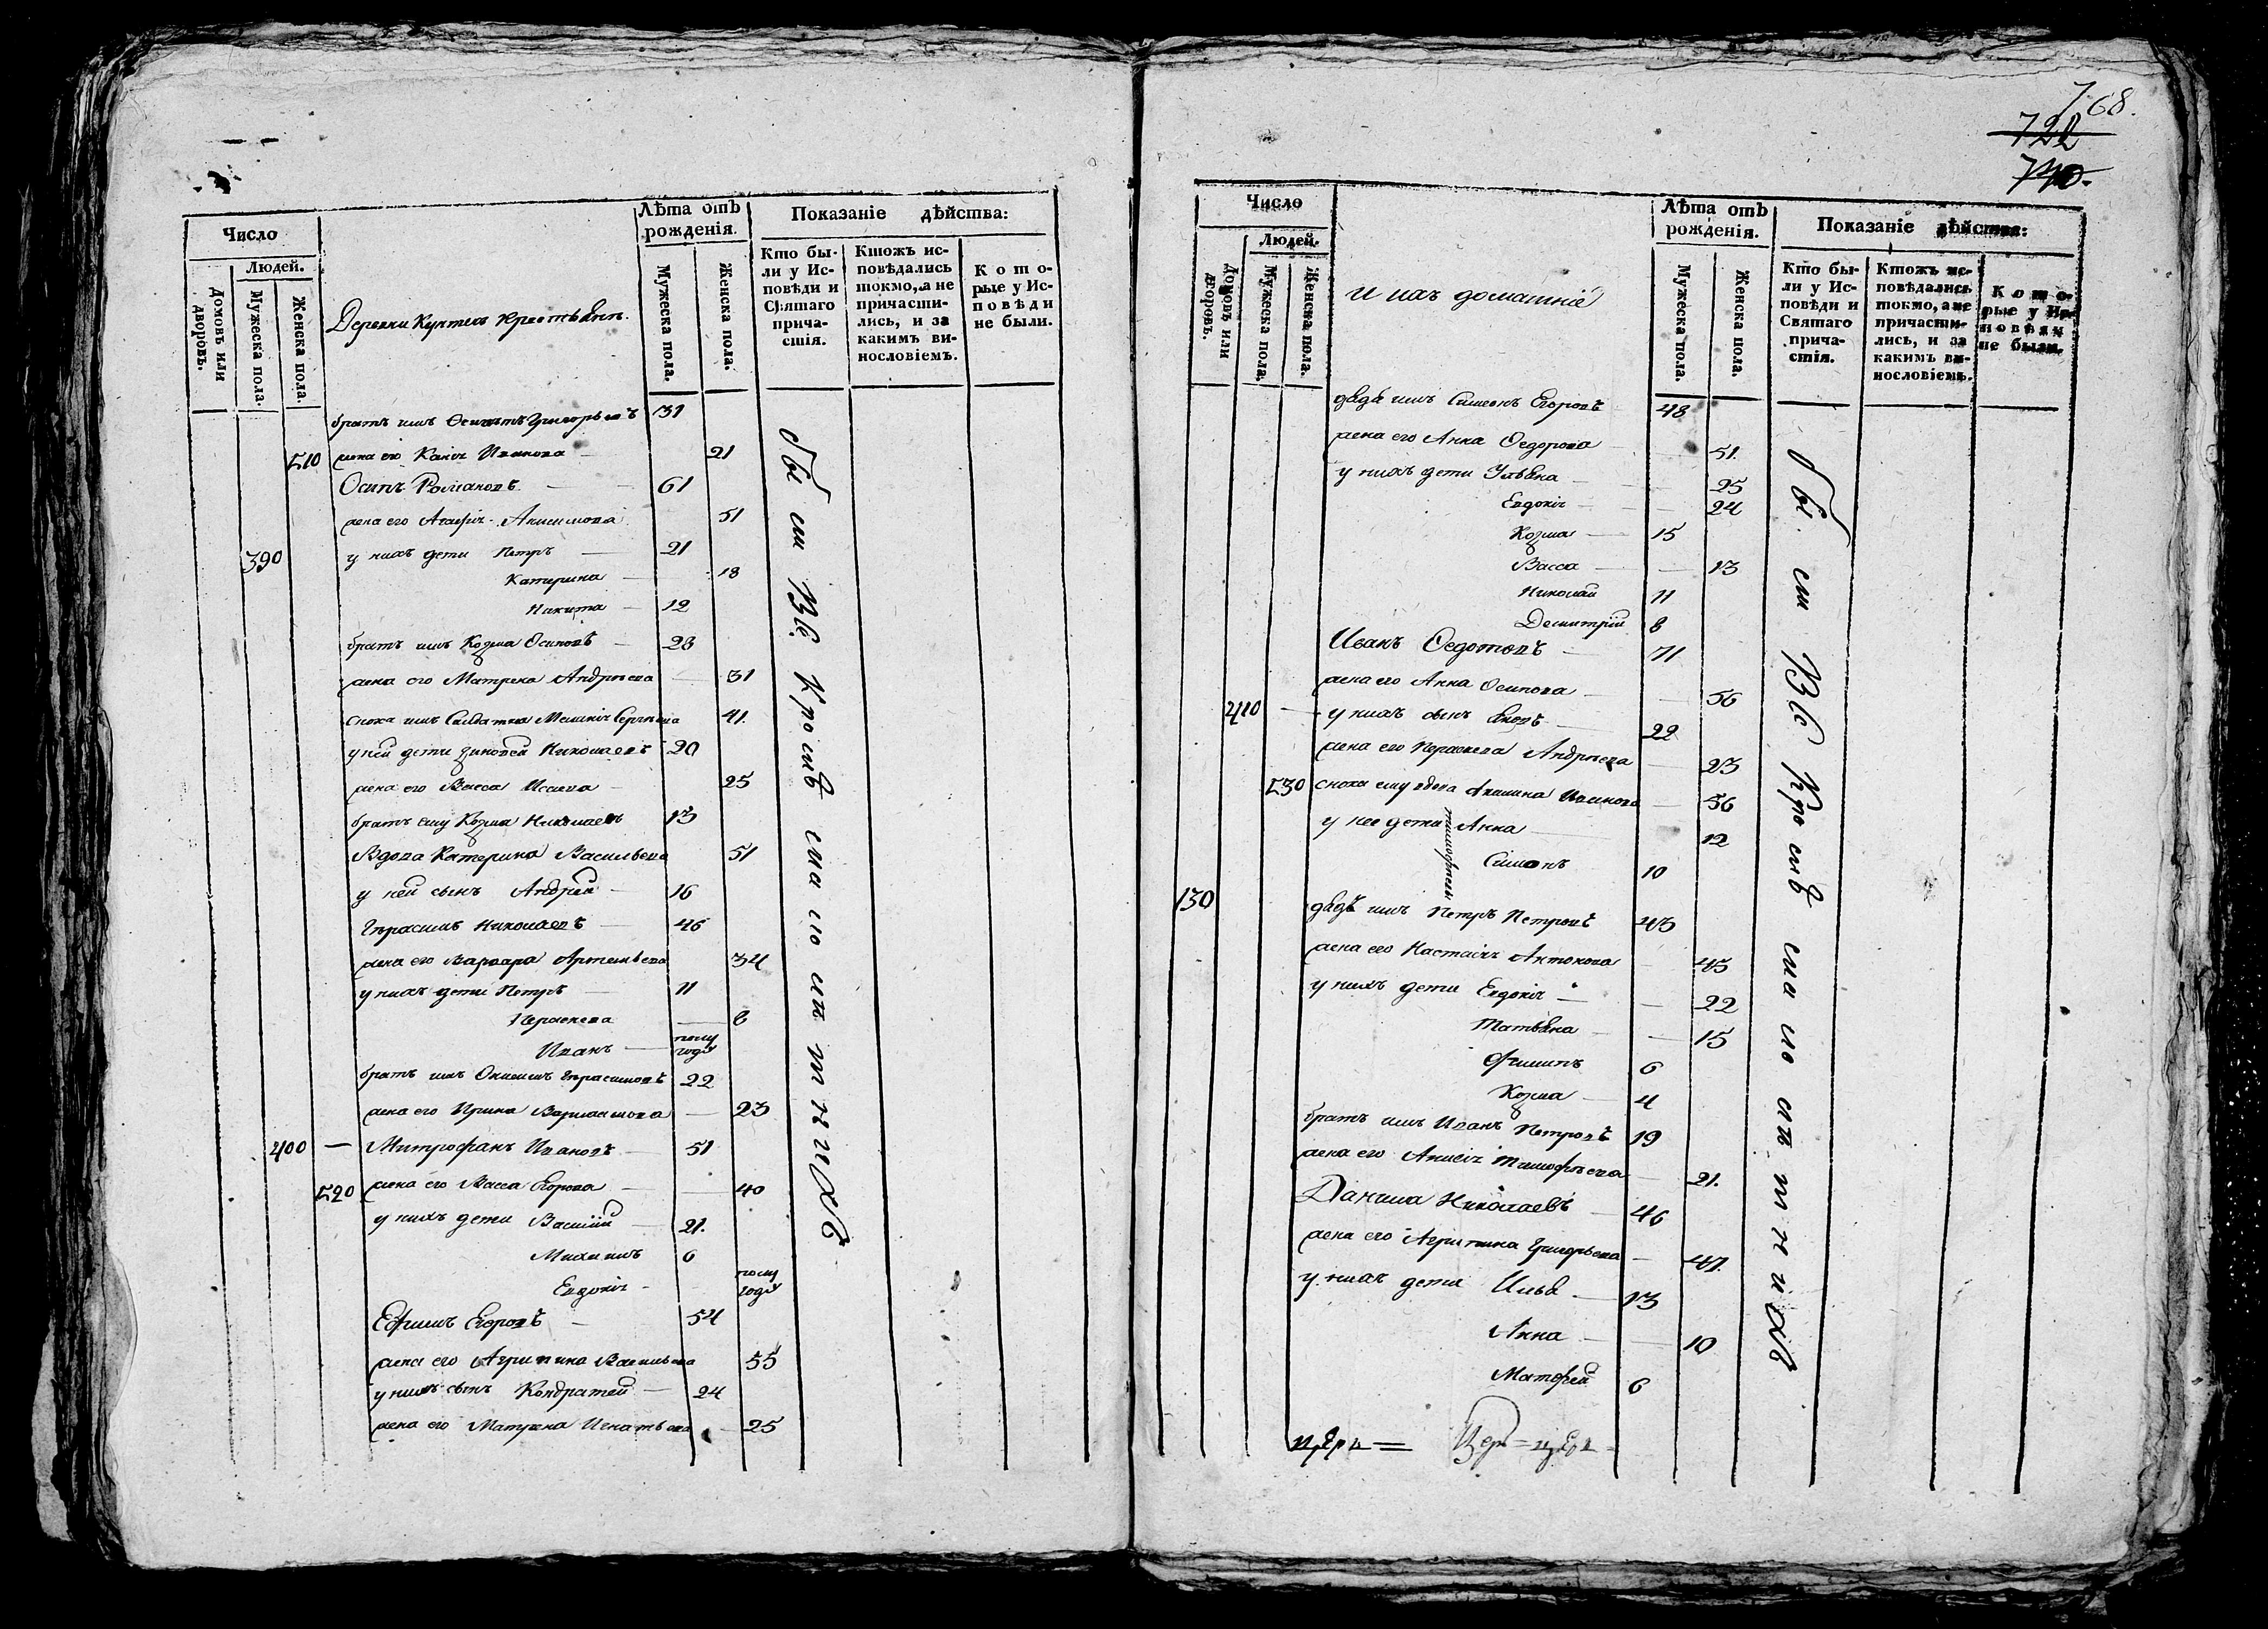 Число
Людей.
Домовъ или дворовъ.
Мужеска пола.
Женска пола.
Деревни Крестьянъ.
Лѣта отъ рожденія.
Мужеска пола.
Женска пола.
Показаніе дѣйства:
Кто бы-
ли у Ис-
повѣди и
Святаго
прича-
стія.
Ктожъ ис-
повѣдались
токмо, а не
причасти-
лись, и за
какимъ ви-
нословіемъ.
Кото-
рые у Ис-
повѣди
не были.
братъ имъ Григорьевъ 31
510 жена его Иванова 21
Осипъ Романовъ 61
жена его Агафія Анисимова 51
390 у нихъ дети Петръ 21
Катерина 18
Никита 12
братъ имъ Козма Осиповъ 28
жена его Матрена Андреева 31
сноха имъ Салдатка 41.
у ней дети Зиновей Николаевъ 20
жена его Васса Исаева 25
братъ ему Козма Николаевъ 13
Вдова Катерина Васильева 51
у ней сынъ Андрей 16
Герасимъ Николаевъ 46
жена его Варвара Артемьева 34
у нихъ дети Петръ 11
Пераскева 8
Иванъ полу году
братъ имъ Герасимовъ 22
жена его Ирина Варламова 23
400 — Митрофанъ Ивановъ 51
520 жена его Васса Егорова 40
у нихъ дети Василій 21.
Михаилъ 6
Евдокія полу году
Ефимъ Егоровъ 54
жена его Агрипина Васильева 55
у нихъ сынъ Кондратей 24
жена его Матрена Игнатьева 25
768.
722
740.
Число
Людей.
Домовъ или дворовъ.
Мужеска пола.
Женска пола.
и ихъ домашніе
Лѣта отъ рожденія.
Мужеска пола.
Женска пола.
Показаніе дѣйства:
Кто бы-
ли у Ис-
повѣди и
Святаго
прича-
стія.
Ктожъ ис-
повѣдались
токмо, а не
причасти-
лись, и за
какимъ ви-
нословіемъ.
Кото-
рые у Ис-
повѣди
не были.
дядя имъ Симеонъ Егоровъ 48
жена его Анна Ѳедорова 51.
у нихъ дети Ульяна 25
Евдокія 24
Козма 15
Васса 13
Николай 11
Демитрій 8
Иванъ Ѳедотовъ 71
жена его Анна Осипова 56
410 — у нихъ сынъ Яковъ 22
жена его Пераскева Андреева 23
530 сноха ему вдова Акилина Иванова 56
у нее дети Анна 12
Симонъ 10
130 дядя имъ Петръ Петровъ 43
жена его Настасія Антонова 45
у нихъ дети Евдокія 22
Татьяна 15
Филипъ 6
Козма 4
братъ имъ Иванъ Петровъ 19
жена его Анисія Тимофеева 21.
Данила Николаевъ 46
жена его Агрипина Григорьева 47.
у нихъ дети Илья 13
Анна 10
Матфей 6